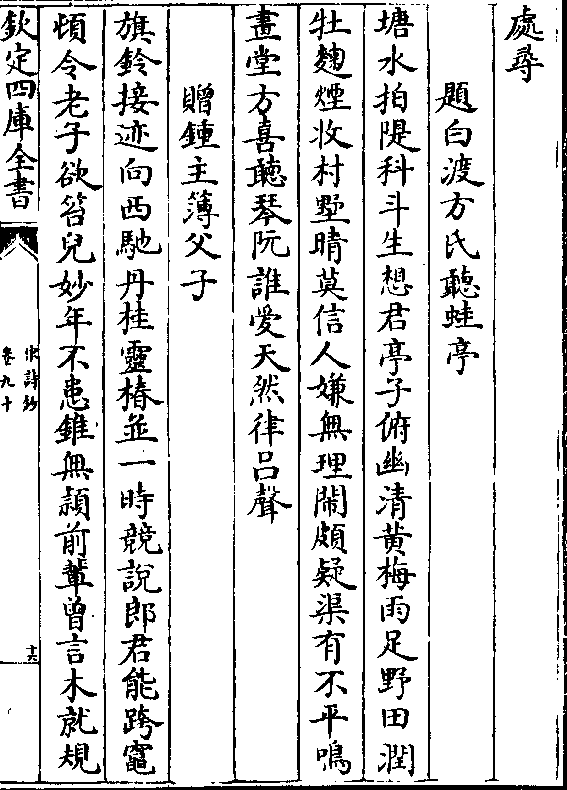 處尋
題白渡方氏聽蛙亭
塘水拍隄科斗生想君亭子俯幽清黃梅雨足野田潤
牡麴煙收村墅晴莫信人嫌無理閙頗疑渠有不平鳴
畫堂方喜聽琴阮誰愛天然律呂聲
贈鍾主簿父子
旗鈴接迹向西馳丹桂靈椿並一時競說郎君能跨竈
頓令老子欲笞兒妙年不患錐無頴前輩曾言木就規
欽定四庫全書
宋詩鈔
卷九十
十六